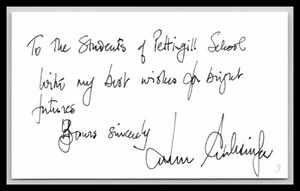 To the Students of Pettingill School
With my best wishes for bright
futures
Yours sincerely